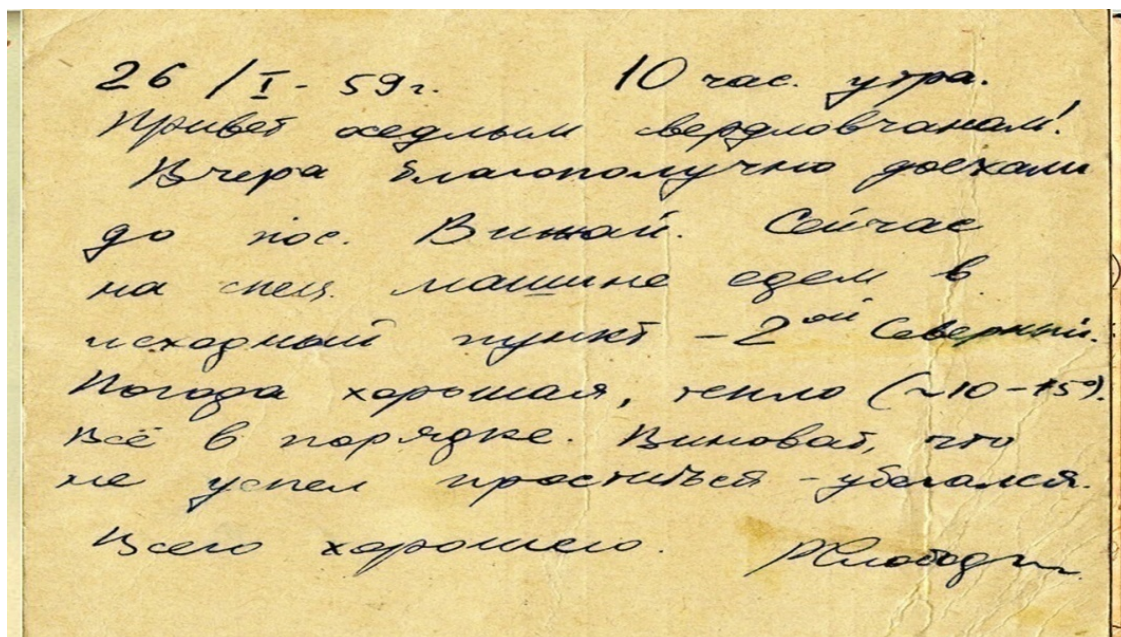 26/I - 59г. 10 час. утра.
Привет оседлым свердловчанам!
Вчера благополучно доехали
до пос. Вижай. Сейчас
на спец. машине едем в
исходный пункт - 2ой Северный.
Погода хорошая, тепло (~10-15°).
Всё в порядке. Виноват, что
не успел проститься - убегался.
Всего хорошего. РСлободин